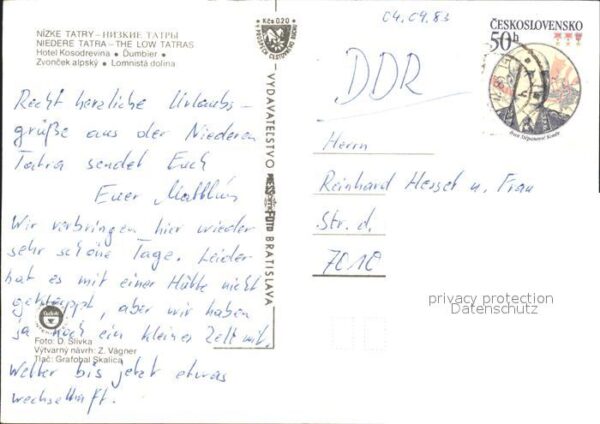 NÍZKE TATRY – НИЗКИЕ ТАТРЫ
NIEDERE TATRA – THE LOW TATRAS
Hotel Kosodrevina • Ďumbier •
Zvonček alpský • Lomnistá dolina
Recht herzliche Urlaubs-
grüße aus der Niederen
Tatra sendet Euch
Euer Matthias
Wir verbringen hier wieder
sehr schöne Tage. Leider
hat es mit einer Hütte nicht
geklappt, aber wir haben
ja noch ein kleines Zelt mit.
Wetter bis jetzt etwas
wechselhaft.
Foto: D. Slivka
Výtvarný návrh: Z. Vágner
Tlač: Grafobal Skalica
Kčs 0,20
VYDAVATEĽSTVO PRESSFOTO BRATISLAVA
04.09.83
ČESKOSLOVENSKO
50 h
DDR
Herrn
Reinhard Hessel u. Frau
Str. d.
7010
privacy protection
Datenschutz